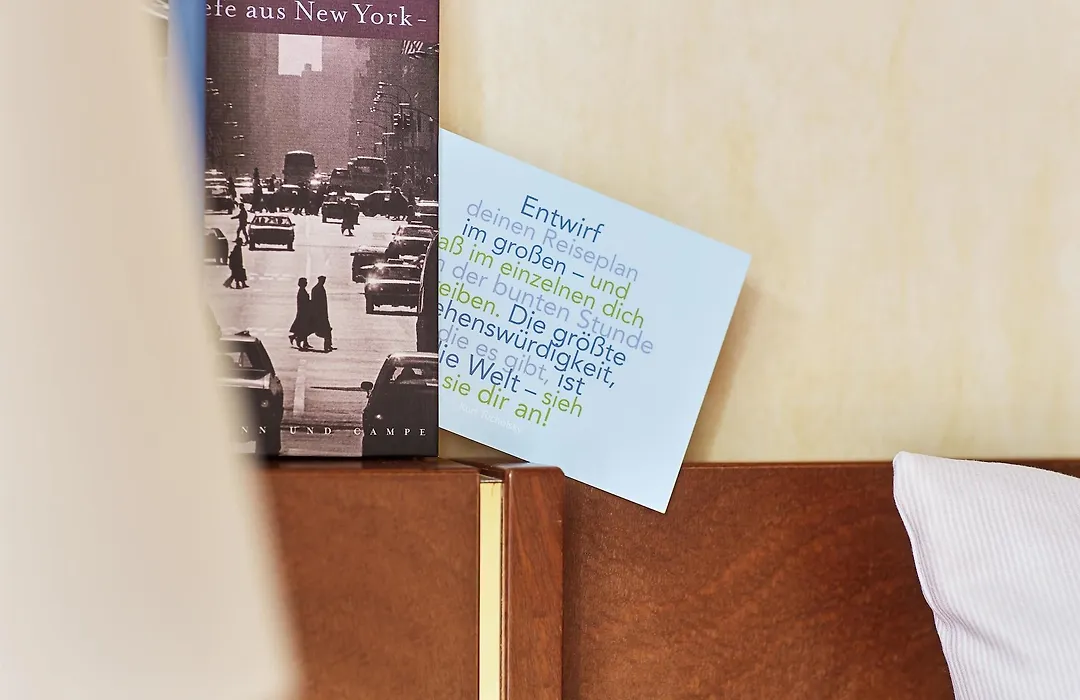 efe aus New York –
NN UND CAMPE
Entwirf
deinen Reiseplan
im großen – und
aß im einzelnen dich
n der bunten Stunde
reiben. Die größte
ehenswürdigkeit,
die es gibt, ist
ie Welt – sieh
sie dir an!
Kurt Tucholsky